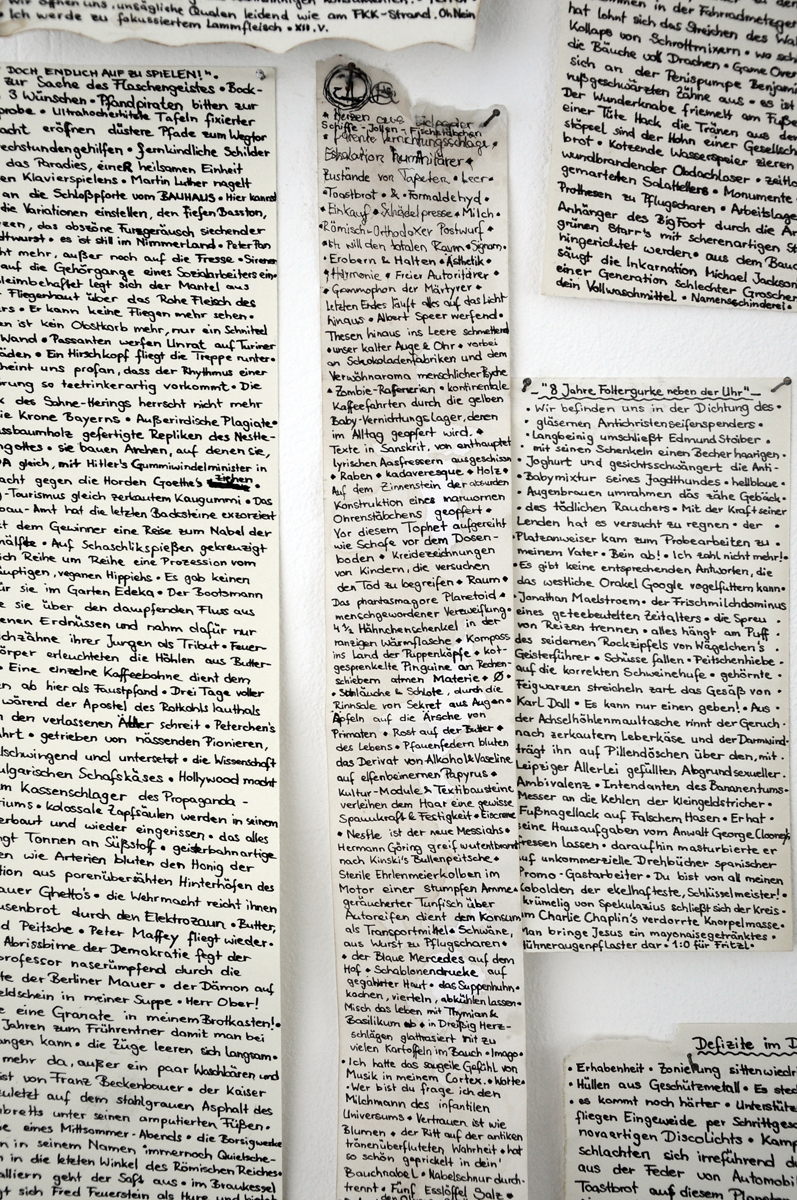 Wir öffnen uns, unsägliche Qualen leidend wie am FKK-Strand. Oh Nein
• Ich werde zu fokussiertem Lammfleisch • XII. V.
DOCH ENDLICH AUF ZU SPIELEN!". •
zur Sache des Flaschengeistes • Bock-
3 Wünschen • Pfandpiraten bitten zur
probe • Ultrahocherhitzte Tafeln fixierter
acht eröffnen düstere Pfade zum Wegtor
echstundengehilfen • Fernkindliche Schilder
das Paradies, einer heilsamen Einheit
en Klavierspielens • Martin Luther nagelt
an die Schloßpforte vom BAUHAUS • Hier kannst
die Variationen einstellen, den tiefen Basston,
een, das obszöne Furzgeräusch siechender
dtwurst • es ist still im Nimmerland • Peter Pan
ht mehr, außer noch auf die Fresse • Sirenen
auf die Gehörgange eines Sozialarbeiters ein •
leimbehaftet legt sich der Mantel aus
Fliegenhaut über das Rohe Fleisch des
rs • Er kann keine Fliegen mehr sehen •
en ist kein Obstkorb mehr, nur ein Schnitzel
Wand • Passanten werfen Unrat auf Turiner
äden • Ein Hirschkopf fliegt die Treppe runter •
heint uns profan, dass der Rhythmus einer
rung so teetrinkerartig vorkommt • Die
k des Sahne-Herings herrscht nicht mehr
ie Krone Bayerns • Außerirdische Plagiate •
ssbaumholz gefertigte Repliken des Nestle-
ngottes • sie bauen Archen, auf denen sie,
A gleich, mit Hitler's Gummiwindelminister in
acht gegen die Horden Goethe's ziehen •
-Tourismus gleich zerkautem Kaugummi • Das
bau-Amt hat die letzten Backsteine exzorziert
t dem Gewinner eine Reise zum Nabel der
hälfte • Auf Schaschlikspießen gekreuzigt
ich Reihe um Reihe eine Prozession vom
äuptigen, veganen Hippiehs • Es gab keinen
ür sie im Garten Edeka • Der Bootsmann
e sie über den dampfenden Fluss aus
enen Erdnüssen und nahm dafür nur
chzähne ihrer Jungen als Tribut • Feuer-
örper erleuchteten die Höhlen aus Butter-
• Eine einzelne Kaffeebohne dient dem
en ab hier als Faustpfand • Drei Tage voller
wärend der Apostel des Rotkohls lauthals
n den verlassenen Äther schreit • Peterchen's
ahrt • getrieben von nässenden Pionieren,
lschwingend und untersetzt • die Wissenschaft
ulgarischen Schafskäses • Hollywood macht
m Kassenschlager des Propaganda-
riums • kolossale Zapfsäulen werden in seinem
erbaut und wieder eingerissen • das alles
ngt Tonnen an Süßstoff • geisterbahnartige
en wie Arterien bluten den Honig der
tion aus porenübersähten Hinterhöfen des
auer Ghetto's • die Wehrmacht reicht ihnen
usenbrot durch den Elektrozaun • Butter,
d Peitsche • Peter Maffey fliegt wieder •
Abrissbirne der Demokratie fegt der
professor naserümpfend durch die
te der Berliner Mauer • der Dämon auf
eldschein in meiner Suppe • Herr Ober!
e eine Granate in meinem Brotkasten! •
Jahren zum Frührentner damit man bei
angen kann • die Züge leeren sich langsam •
mehr da, außer ein paar Waschbären und
ist von Franz Beckenbauer • der Kaiser
zuletzt auf dem stahlgrauen Asphalt des
mbretts unter seinen amputierten Füßen •
e eines Mittsommer-Abends • die Borsigwerke
n in seinem Namen immernoch Quietsche-
n in die letzten Winkel des Römischen Reiches •
alliern geht der Saft aus • im Braukessel
gt sich Fred Feuerstein als Hure und
• Herzen aus
Schiffe - Jollen - Fischstäbchen
Patente Vernichtungsschlage •
Exhalation humanitärer •
Zustände von Tapeten • Leer •
• Toastbrot • & • Formaldehyd •
• Einkauf • Schädelpresse • Milch •
Römisch-Orthodoxer Postwurf •
• Ich will den totalen Raum • Signum •
• Erobern & Halten • Ästhetik •
• Hymenie • Freier Autoritärer •
• Grammophon der Märtyrer •
Letzten Endes läuft alles auf das Licht
hinaus • Albert Speer werfend •
Thesen hinaus ins Leere schmetternd
• unser kalter Auge & Ohr • vorbei
an Schokoladenfabriken und dem
Verwöhnaroma menschlicher Psyche
• Zombie-Raferenien • kontinentale
Kaffeefahrten durch die gelben
Baby-Vernichtungslager, deren
im Alltag geopfert wird. •
Texte in Sanskrit, von enthauptet
lyrischen Aasfressern ausgeschissen
• Raben • kadaveresque • Holz •
Auf dem Zinnenstein der absurden
Konstruktion eines marmornen
Ohrenstäbchens geopfert •
Vor diesem Tophet aufgereiht
wie Schafe vor dem Dosen-
boden • Kreidezeichnungen
von Kindern, die versuchen
den Tod zu begreifen • Raum •
Das phantasmagore Planetoid •
menschgewordener Verzweiflung •
4 ½ Hähnchenschenkel in der
ranzigen Wärmflasche • Kompass
ins Land der Puppenköpfe • kot-
gesprenkelte Pinguine an Rechen-
schiebern atmen Materie • Ø •
• Schläuche & Schlote, durch die
Rinnsale von Sekret aus Augen •
Äpfeln auf die Ärsche von
Primaten • Rost auf der Butter •
des Lebens • Pfauenfedern bluten
das Derivat von Alkohol & Vaseline
auf elfenbeinernen Papyrus •
Kultur-Module & Textbausteine
verleihen dem Haar eine gewisse
Spannkraft & Festigkeit • Eiscreme
• Nestle ist der neue Messiahs •
Hermann Göring greift wutentbrannt
nach Kinski's Bullenpeitsche •
Sterile Ehrlenmeierkolben im
Motor einer stumpfen Amme •
geräucherter Tunfisch über
Autoreifen dient dem Konsum
als Transportmittel • Schwäne,
aus Wurst zu Pflugscharen •
• der Blaue Mercedes auf dem
Hof • Schablonendrucke auf
gegährter Haut • das Suppenhuhn •
kochen, vierteln, abkühlen lassen •
Misch das leben mit Thymian &
Basilikum ab • in Dreißig Herz-
schlägen glattrasiert mit zu
vielen Kartoffeln im Bauch • Imago •
• Ich hatte das saugeile Gefühl von
Musik in meinem Cortex • Watte •
• Wer bist du frage ich den
Milchmann des infantilen
Universums • Vertrauen ist wie
Blumen • der Ritt auf der antiken
tränenüberfluteten Wahrheit • hat
so schön geprickelt in dein'
Bauchnabel • Nabelschnur durch-
trennt • Fünf Esslöffel Salz •
in der Fahrradmetzger
hat lohnt sich das Streichen des
Kollaps von Schrottmixern •
die Bäuche voll Drachen • Game Over
sich an der Penispumpe Benjamin
rußgeschwärzten Zähne aus • es ist
Der Wunderknabe friemelt am Fuße
einer Tüte Hack die Tränen aus den
stöpsel sind der Hohn einer Gesellsch
brot • Kotzende Wasserspeier zieren
wundbrandender Obdachloser • zeitlo
gemarterten Salattellers • Monumente
Prothesen zu Pflugscharen • Arbeitslage
Anhänger des BigFoot durch die Ar
grünen Starr's mit scherenartigen St
hingerichtet werden • aus dem Bauc
säugt die Inkarnation Michael Jackson
einer Generation schlechter Groschen
dein Vollwaschmittel • Namensschinderei •
"8 Jahre Foltergurke neben der Uhr"
• Wir befinden uns in der Dichtung des •
gläsernen Antichristenseifenspenders •
• Langbeinig umschließt Edmund Stoiber •
• mit seinen Schenkeln einen Becher haarigen •
• Joghurt und gesichtsschwängert die Anti-
• Babymixtur seines Jagdhundes • hellblaue •
• Augenbrauen umrahmen das zähe Gebäck •
• des tödlichen Rauchers • Mit der Kraft seiner
Lenden hat es versucht zu regnen • der •
• Platzanweiser kam zum Probearbeiten zu •
meinem Vater • Bein ab! • Ich zahl nicht mehr! •
• Es gibt keine entsprechenden Antworten, die
das westliche Orakel Google vogelfuttern kann •
• Jonathan Maelstroem • der Frischmilchdominus
eines geteebeutelten Zeitalters • die Spreu •
von Reizen trennen • alles hängt am Puff •
des seidernen Rockzipfels von Wägelchen's
Geisterführer • Schüsse fallen • Peitschenhiebe •
auf die korrekten Schweinehufe • gehörnte •
Feigwarzen streicheln zart das Gesäß von •
Karl Dall • Es kann nur einen geben! • Aus •
der Achselhöhlenmaultasche rinnt der Geruch •
nach zerkautem Leberkäse und der Darmwind •
trägt ihn auf Pillendöschen über den, mit •
Leipziger Allerlei gefüllten Abgrund sexueller •
Ambivalenz • Intendanten des Bananentums •
Messer an die Kehlen der Kleingeldstricher •
Fußnagellack auf Falschem Hasen • Er hat •
seine Hausaufgaben vom Anwalt George Clooney's
fressen lassen • daraufhin masturbierte er
auf unkommerzielle Drehbücher spanischer
Promo-Gastarbeiter • Du bist von all meinen
Kobolden der ekelhafteste, Schlüsselmeister! •
krümelig von Spekulazius schließt sich der Kreis •
um Charlie Chaplin's verdorrte Knorpelmasse •
Man bringe Jesus ein mayonaisegetränktes •
Hühneraugenpflaster dar • 1:0 für Fritzl •
Defizite im D
• Erhabenheit • Zonierung sittenwiedri
• Hüllen aus Geschützmetall • Es steck
• es kommt noch härter • Unterstütz
fliegen Eingeweide per Schrittges
novaartigen Discolichts • Kamp
schlachten sich irreführend d
aus der Feder von Automobi
Toastbrot auf diesem Planeten